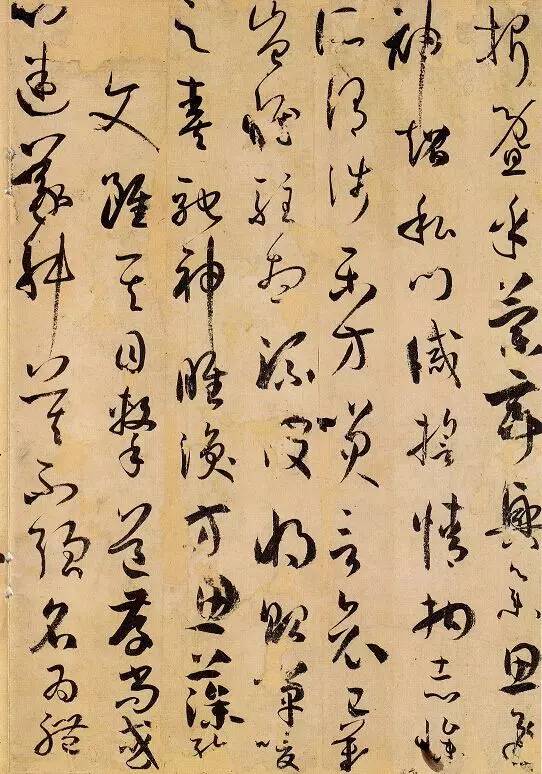 折暨乎蘭亭興集思逸
神超私門誡誓情拘志慘
所謂涉樂方笑言哀已歎
豈惟駐想流波將貽嘽噯
之奏馳神睢渙方思藻繪
文雖其目擊道存尚或
心迷議舛莫不強名為體